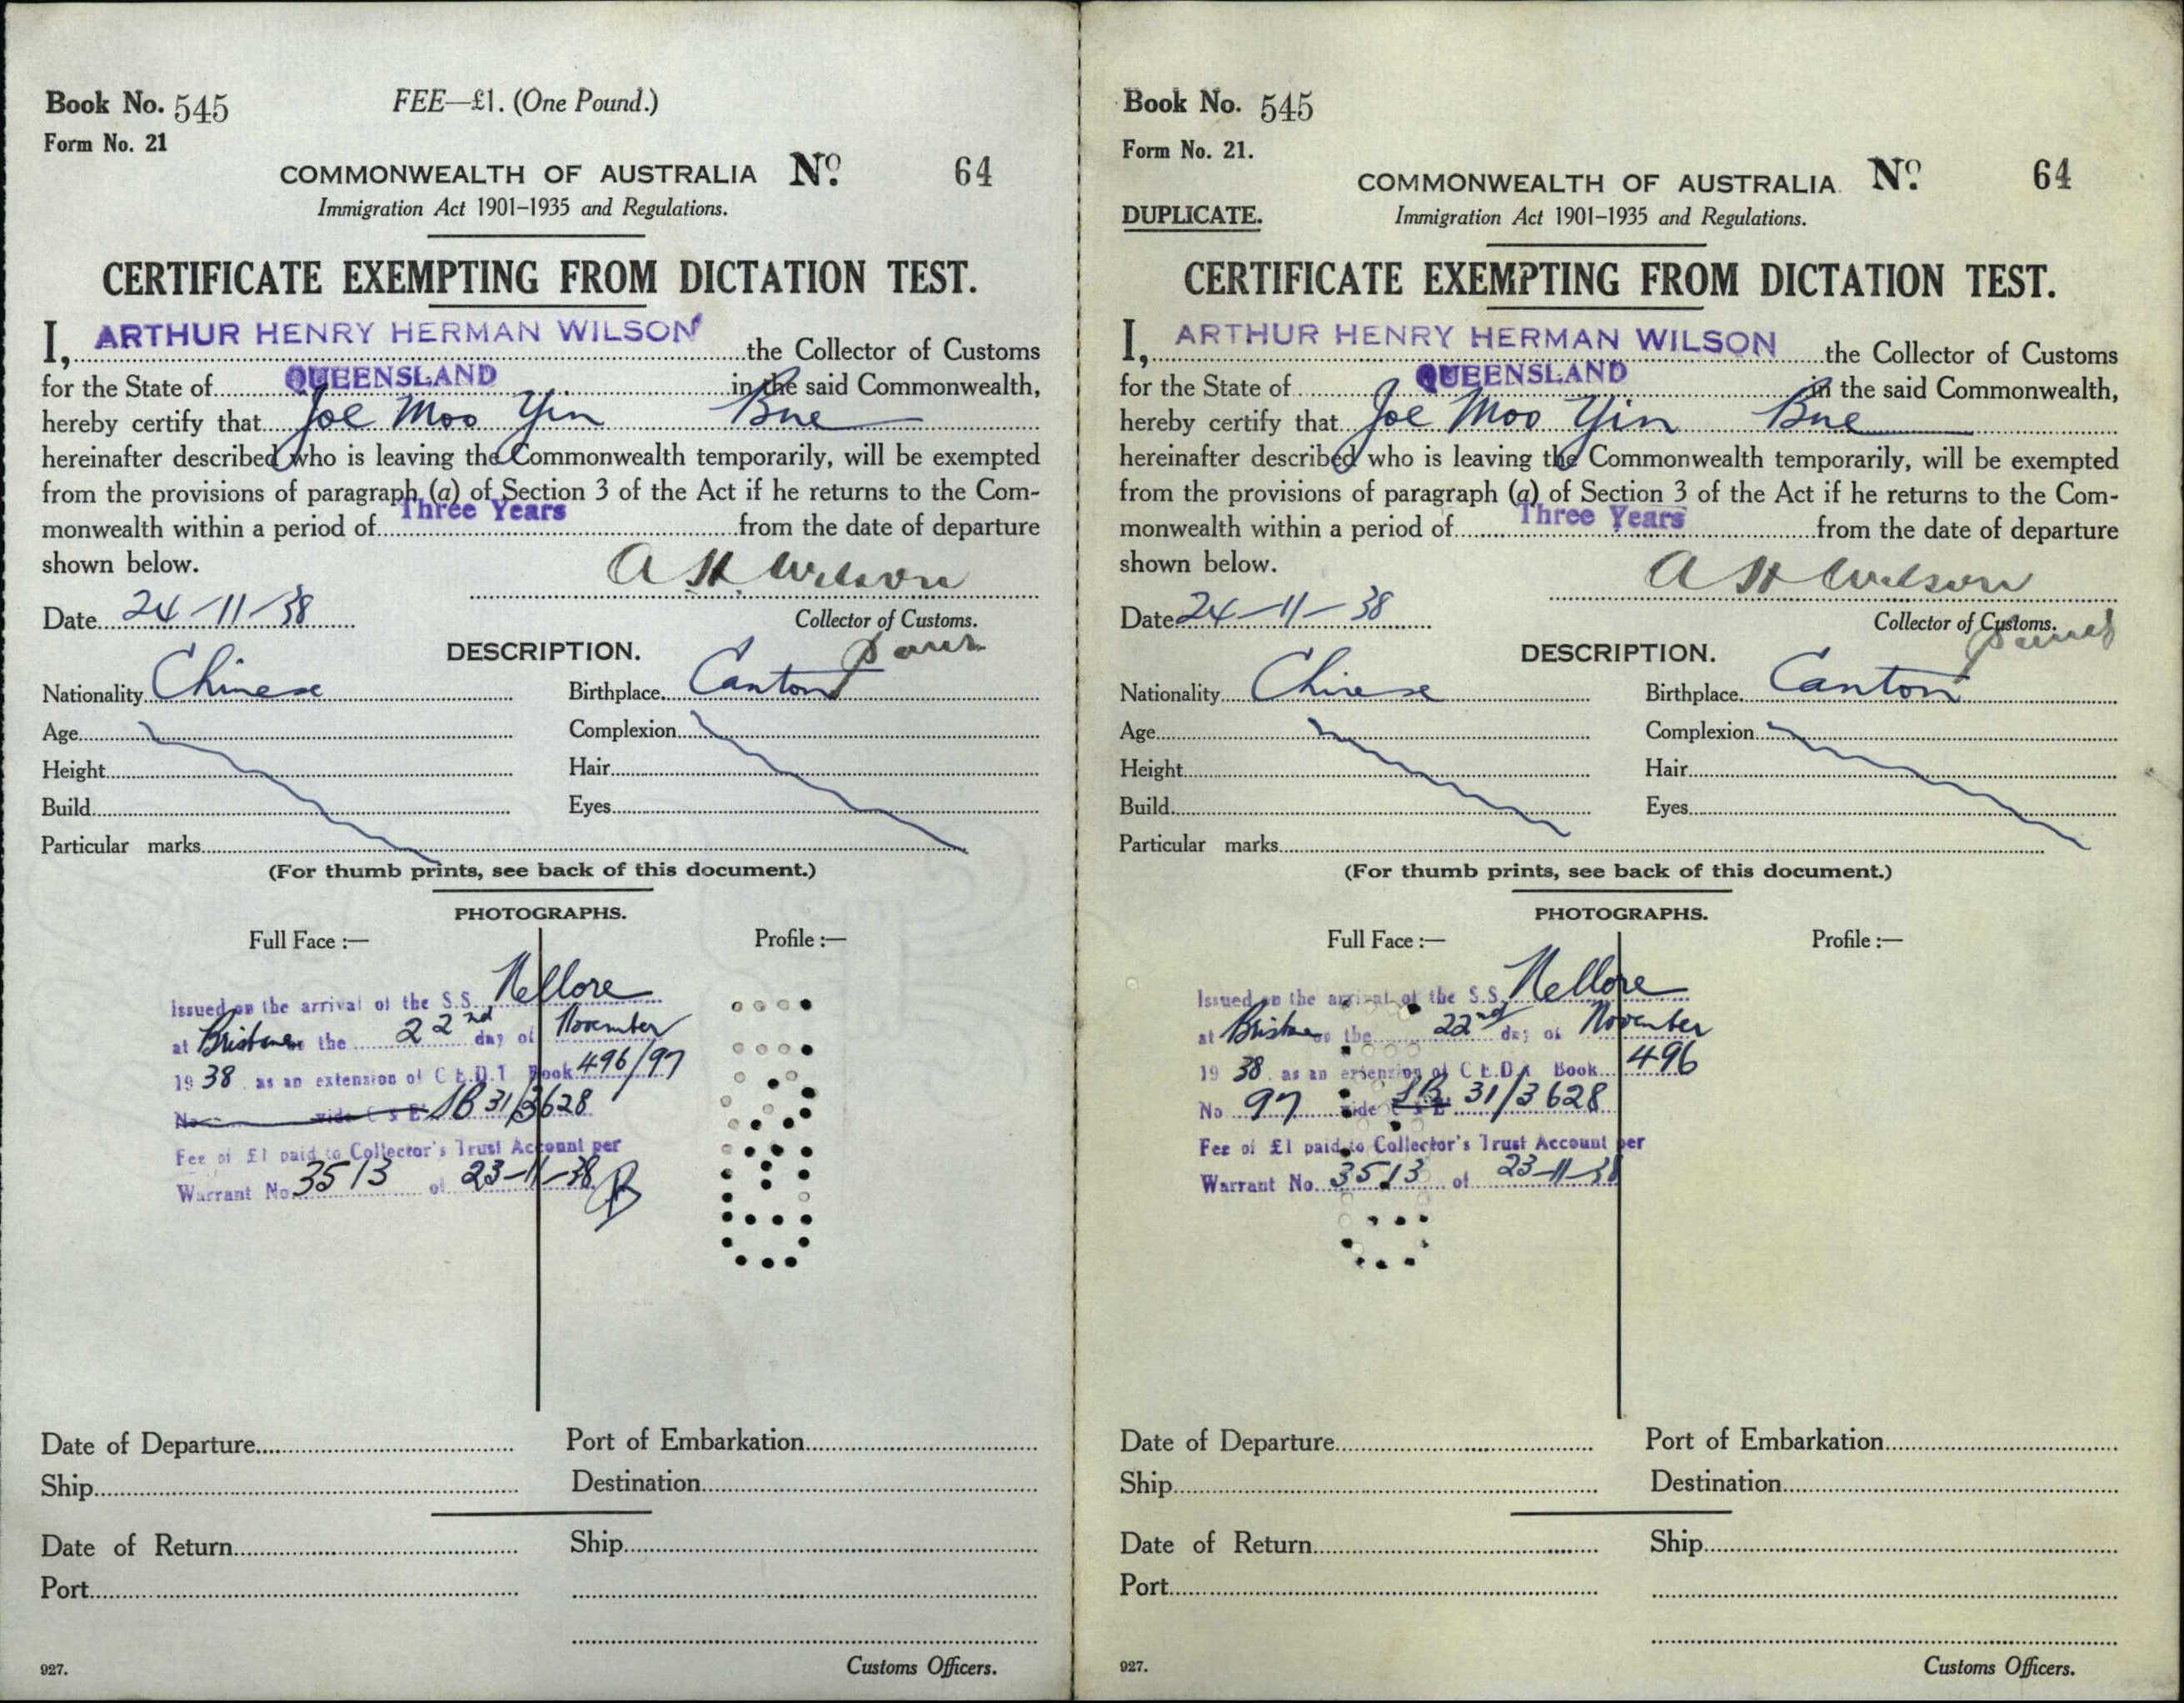 Book No. 545
FEE—£1. (One Pound.)
Form No. 21
COMMONWEALTH OF AUSTRALIA No. 64
Immigration Act 1901–1935 and Regulations.
CERTIFICATE EXEMPTING FROM DICTATION TEST.
I, ARTHUR HENRY HERMAN WILSON the Collector of Customs
for the State of QUEENSLAND in the said Commonwealth,
hereby certify that Joe Moo Yin Bne
hereinafter described who is leaving the Commonwealth temporarily, will be exempted
from the provisions of paragraph (a) of Section 3 of the Act if he returns to the Com-
monwealth within a period of Three Years from the date of departure
shown below.
A H Wilson
Date 24-11-38
Collector of Customs.
DESCRIPTION.
Nationality Chinese Birthplace Canton
Age Complexion
Height Hair
Build Eyes
Particular marks
(For thumb prints, see back of this document.)
PHOTOGRAPHS.
Full Face :— Profile :—
Issued on the arrival of the S.S. Nellore
at Brisbane on the 22nd day of November
1938 as an extension of C.E.D.T Book 496/97
No vide C & E SB 31/3628
Fee of £1 paid to Collector's Trust Account per
Warrant No 3513 of 23-11-38
Date of Departure Port of Embarkation
Ship Destination
Date of Return Ship
Port
927. Customs Officers.
Book No. 545
Form No. 21.
COMMONWEALTH OF AUSTRALIA No. 64
DUPLICATE.
Immigration Act 1901–1935 and Regulations.
CERTIFICATE EXEMPTING FROM DICTATION TEST.
I, ARTHUR HENRY HERMAN WILSON the Collector of Customs
for the State of QUEENSLAND in the said Commonwealth,
hereby certify that Joe Moo Yin Bne
hereinafter described who is leaving the Commonwealth temporarily, will be exempted
from the provisions of paragraph (a) of Section 3 of the Act if he returns to the Com-
monwealth within a period of Three Years from the date of departure
shown below.
A H Wilson
Date 24-11-38
Collector of Customs.
DESCRIPTION.
Nationality Chinese Birthplace Canton
Age Complexion
Height Hair
Build Eyes
Particular marks
(For thumb prints, see back of this document.)
PHOTOGRAPHS.
Full Face :— Profile :—
Issued on the arrival of the S.S. Nellore
at Brisbane on the 22nd day of November
1938 as an extension of C.E.D.T. Book 496
No 97 vide SB 31/3628
Fee of £1 paid to Collector's Trust Account per
Warrant No. 3513 of 23-11-38
Date of Departure Port of Embarkation
Ship Destination
Date of Return Ship
Port
927. Customs Officers.